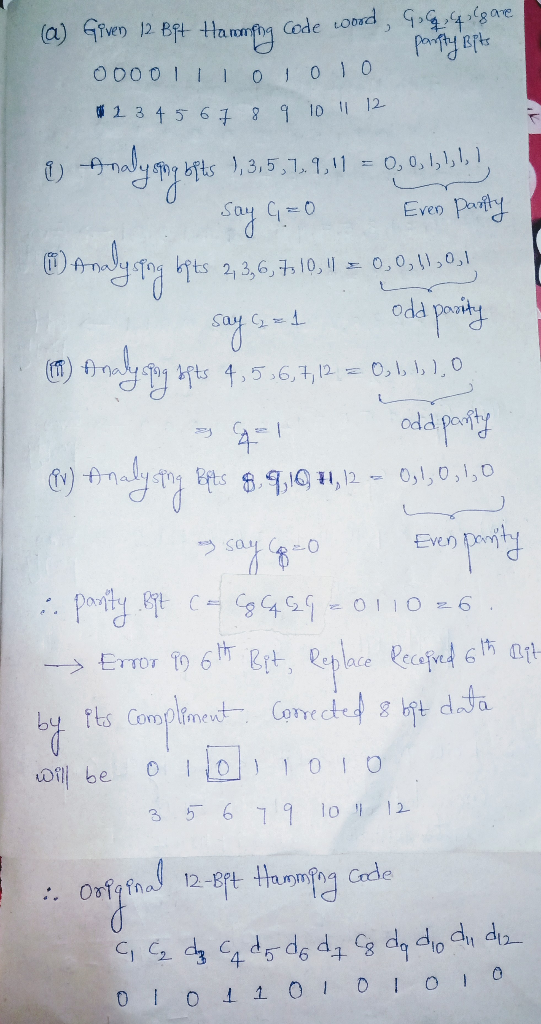 (a) Given 12 Bit Hamming Code word, C1, C2, C4, C8 are
parity Bits
0 0 0 0 1 1 1 0 1 0 1 0
1 2 3 4 5 6 7 8 9 10 11 12
i) Analysing bits 1,3,5,7,9,11 = 0,0,1,1,1,1
say C1=0 Even parity
ii) Analysing bits 2,3,6,7,10,11 = 0,0,1,1,0,1
say C2=1 odd parity
(iii) Analysing bits 4,5,6,7,12 = 0,1,1,1,0
⇒ C4=1 odd parity
(iv) Analysing Bits 8,9,10,11,12 = 0,1,0,1,0
⇒ say C8=0 Even parity
∴ parity Bit C = C8 C4 C2 C1 = 0110 = 6.
→ Error in 6th Bit, Replace Received 6th Bit
by its compliment. Corrected 8 bit data
will be 0 1 0 1 1 0 1 0
3 5 6 7 9 10 11 12
∴ original 12-Bit Hamming Code
C1 C2 d3 C4 d5 d6 d7 C8 d9 d10 d11 d12
0 1 0 1 1 0 1 0 1 0 1 0